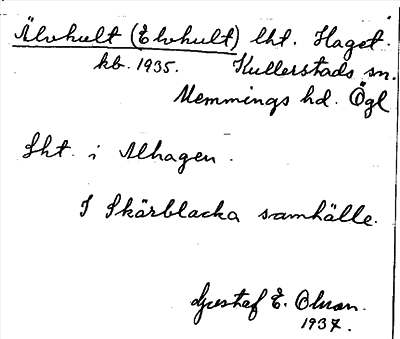 Älvhult (Elvhult) lht. Haget.
kb. 1935. Kullerstads sn.
Memmings hd. Ögl
Lht. i Alhagen.
I Skärblacka samhälle.
Gustaf E. Olsson.
1937.